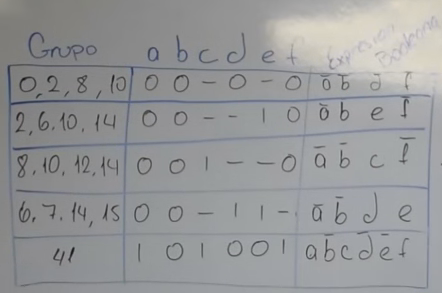 Grupo a b c d e f Expresion Booleana
0, 2, 8, 10 0 0 - 0 - 0 a̅ b̅ d̅ f̅
2, 6. 10, 14 0 0 - - 1 0 a̅ b̅ e f̅
8, 10, 12, 14 0 0 1 - - 0 a̅ b̅ c f̅
6, 7, 14, 15 0 0 - 1 1 - a̅ b̅ d e
41 1 0 1 0 0 1 a b̅ c d̅ e̅ f